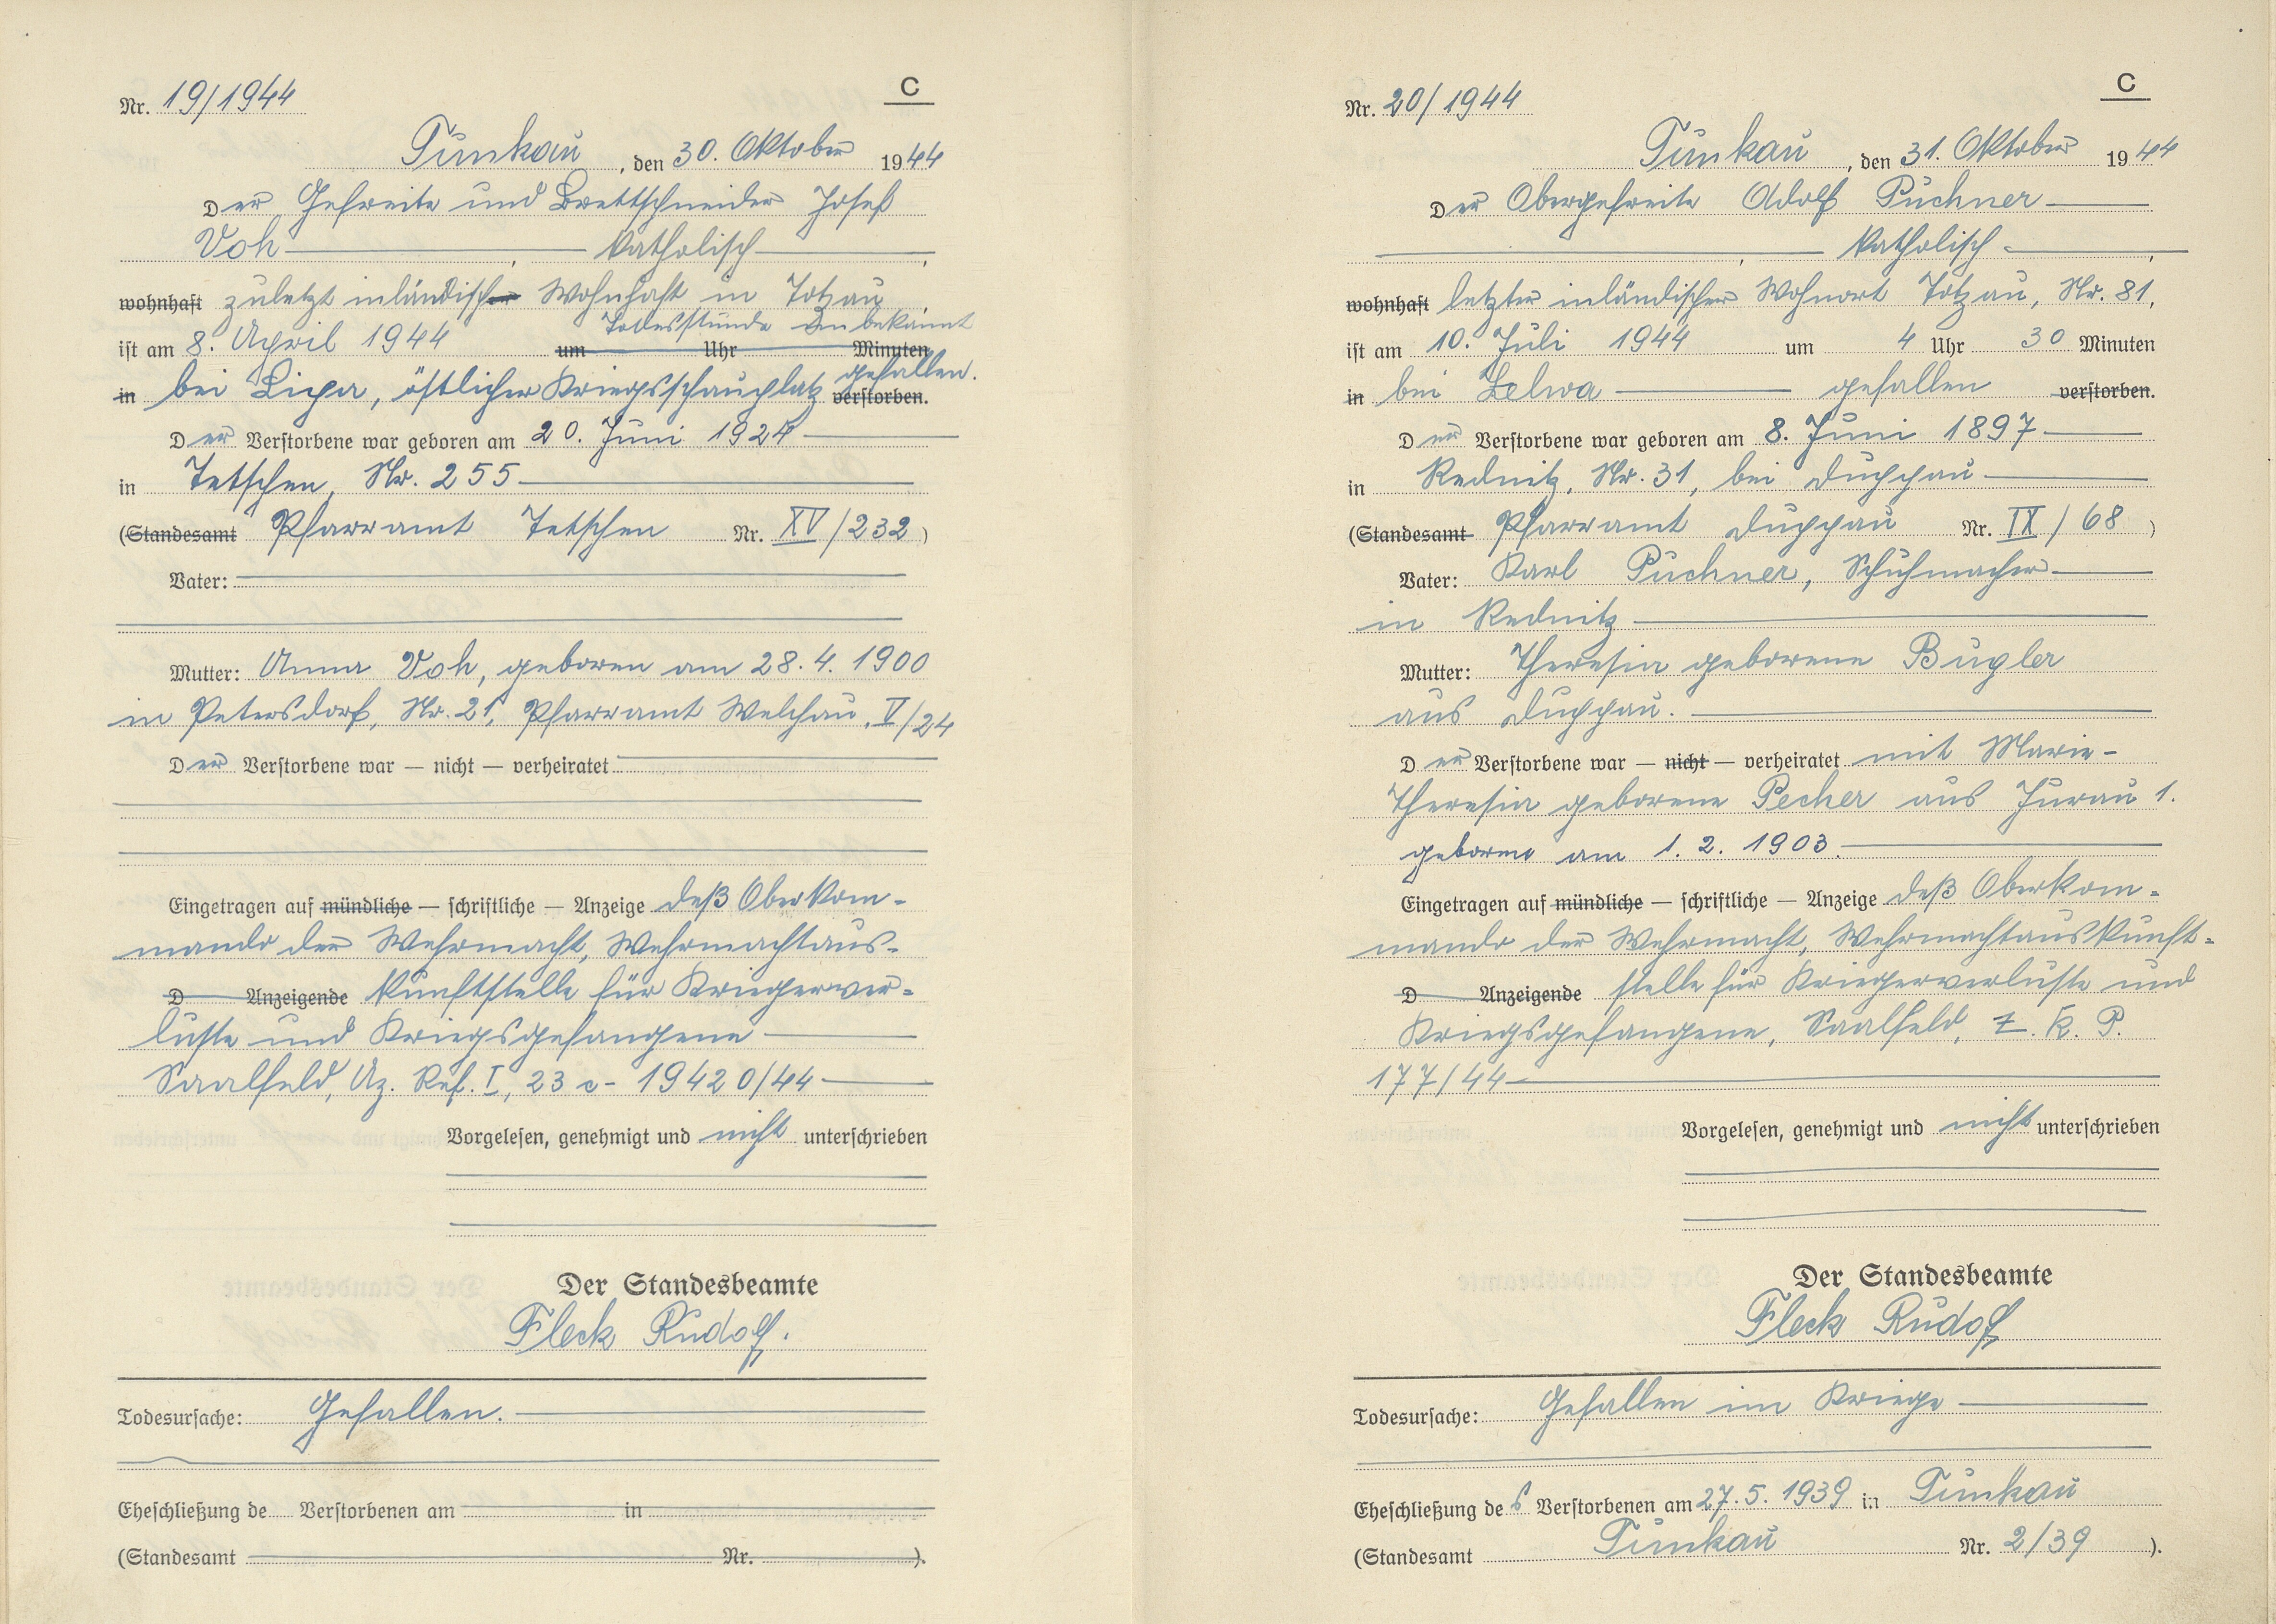 Nr. 19/1944
C
Tunkau, den 30. Oktober 1944
Der Gefreite und Brettschneider Josef
Voh katholisch,
wohnhaft zuletzt inländisch Wohnhaft in Totzau
Todesstunde unbekannt
ist am 8. April 1944 um Uhr Minuten
gefallen.
in bei Lipa, östlicher Kriegsschauplatz verstorben.
Der Verstorbene war geboren am 20. Juni 1924
in Tetschen, Nr. 255
(Standesamt Pfarramt Tetschen Nr. XV/232)
Vater:
Mutter: Anna Voh, geboren am 28.4.1900
in Petersdorf, Nr. 21, Pfarramt Welchau, V/24
Der Verstorbene war — nicht — verheiratet
Eingetragen auf mündliche — schriftliche — Anzeige deß Oberkom-
mando der Wehrmacht, Wehrmachtaus-
D Anzeigende kunftstelle für Kriegerver-
luste und Kriegsgefangene
Saalfeld, Az. Ref. I, 23 c- 19420/44
Vorgelesen, genehmigt und nicht unterschrieben
Der Standesbeamte
Fleck Rudolf.
Todesursache: Gefallen.
Eheschließung de Verstorbenen am in
(Standesamt Nr. ).
Nr. 20/1944
C
Tunkau, den 31. Oktober 1944
Der Obergefreite Adolf Puchner
katholisch,
wohnhaft letzter inländischer Wohnort Totzau, Nr. 81,
ist am 10. Juli 1944 um 4 Uhr 30 Minuten
in bei Lelwa gefallen verstorben.
Der Verstorbene war geboren am 8. Juni 1897
in Rednitz, Nr. 31, bei Duppau
(Standesamt Pfarramt Duppau Nr. IX/68)
Vater: Karl Puchner, Schuhmacher
in Rednitz
Mutter: Theresia geborene Bugler
aus Duppau.
Der Verstorbene war — nicht — verheiratet mit Marie-
Theresia geborene Pecher aus Jurau 1.
geborene am 1.2.1903.
Eingetragen auf mündliche — schriftliche — Anzeige deß Oberkom-
mando der Wehrmacht, Wehrmachtauskunft-
D Anzeigende stelle für Kriegerverluste und
Kriegsgefangene, Saalfeld, Z. K. P.
177/44
Vorgelesen, genehmigt und nicht unterschrieben
Der Standesbeamte
Fleck Rudolf
Todesursache: Gefallen im Kriege
Eheschließung des Verstorbenen am 27.5.1939 in Tunkau
(Standesamt Tunkau Nr. 2/39 ).